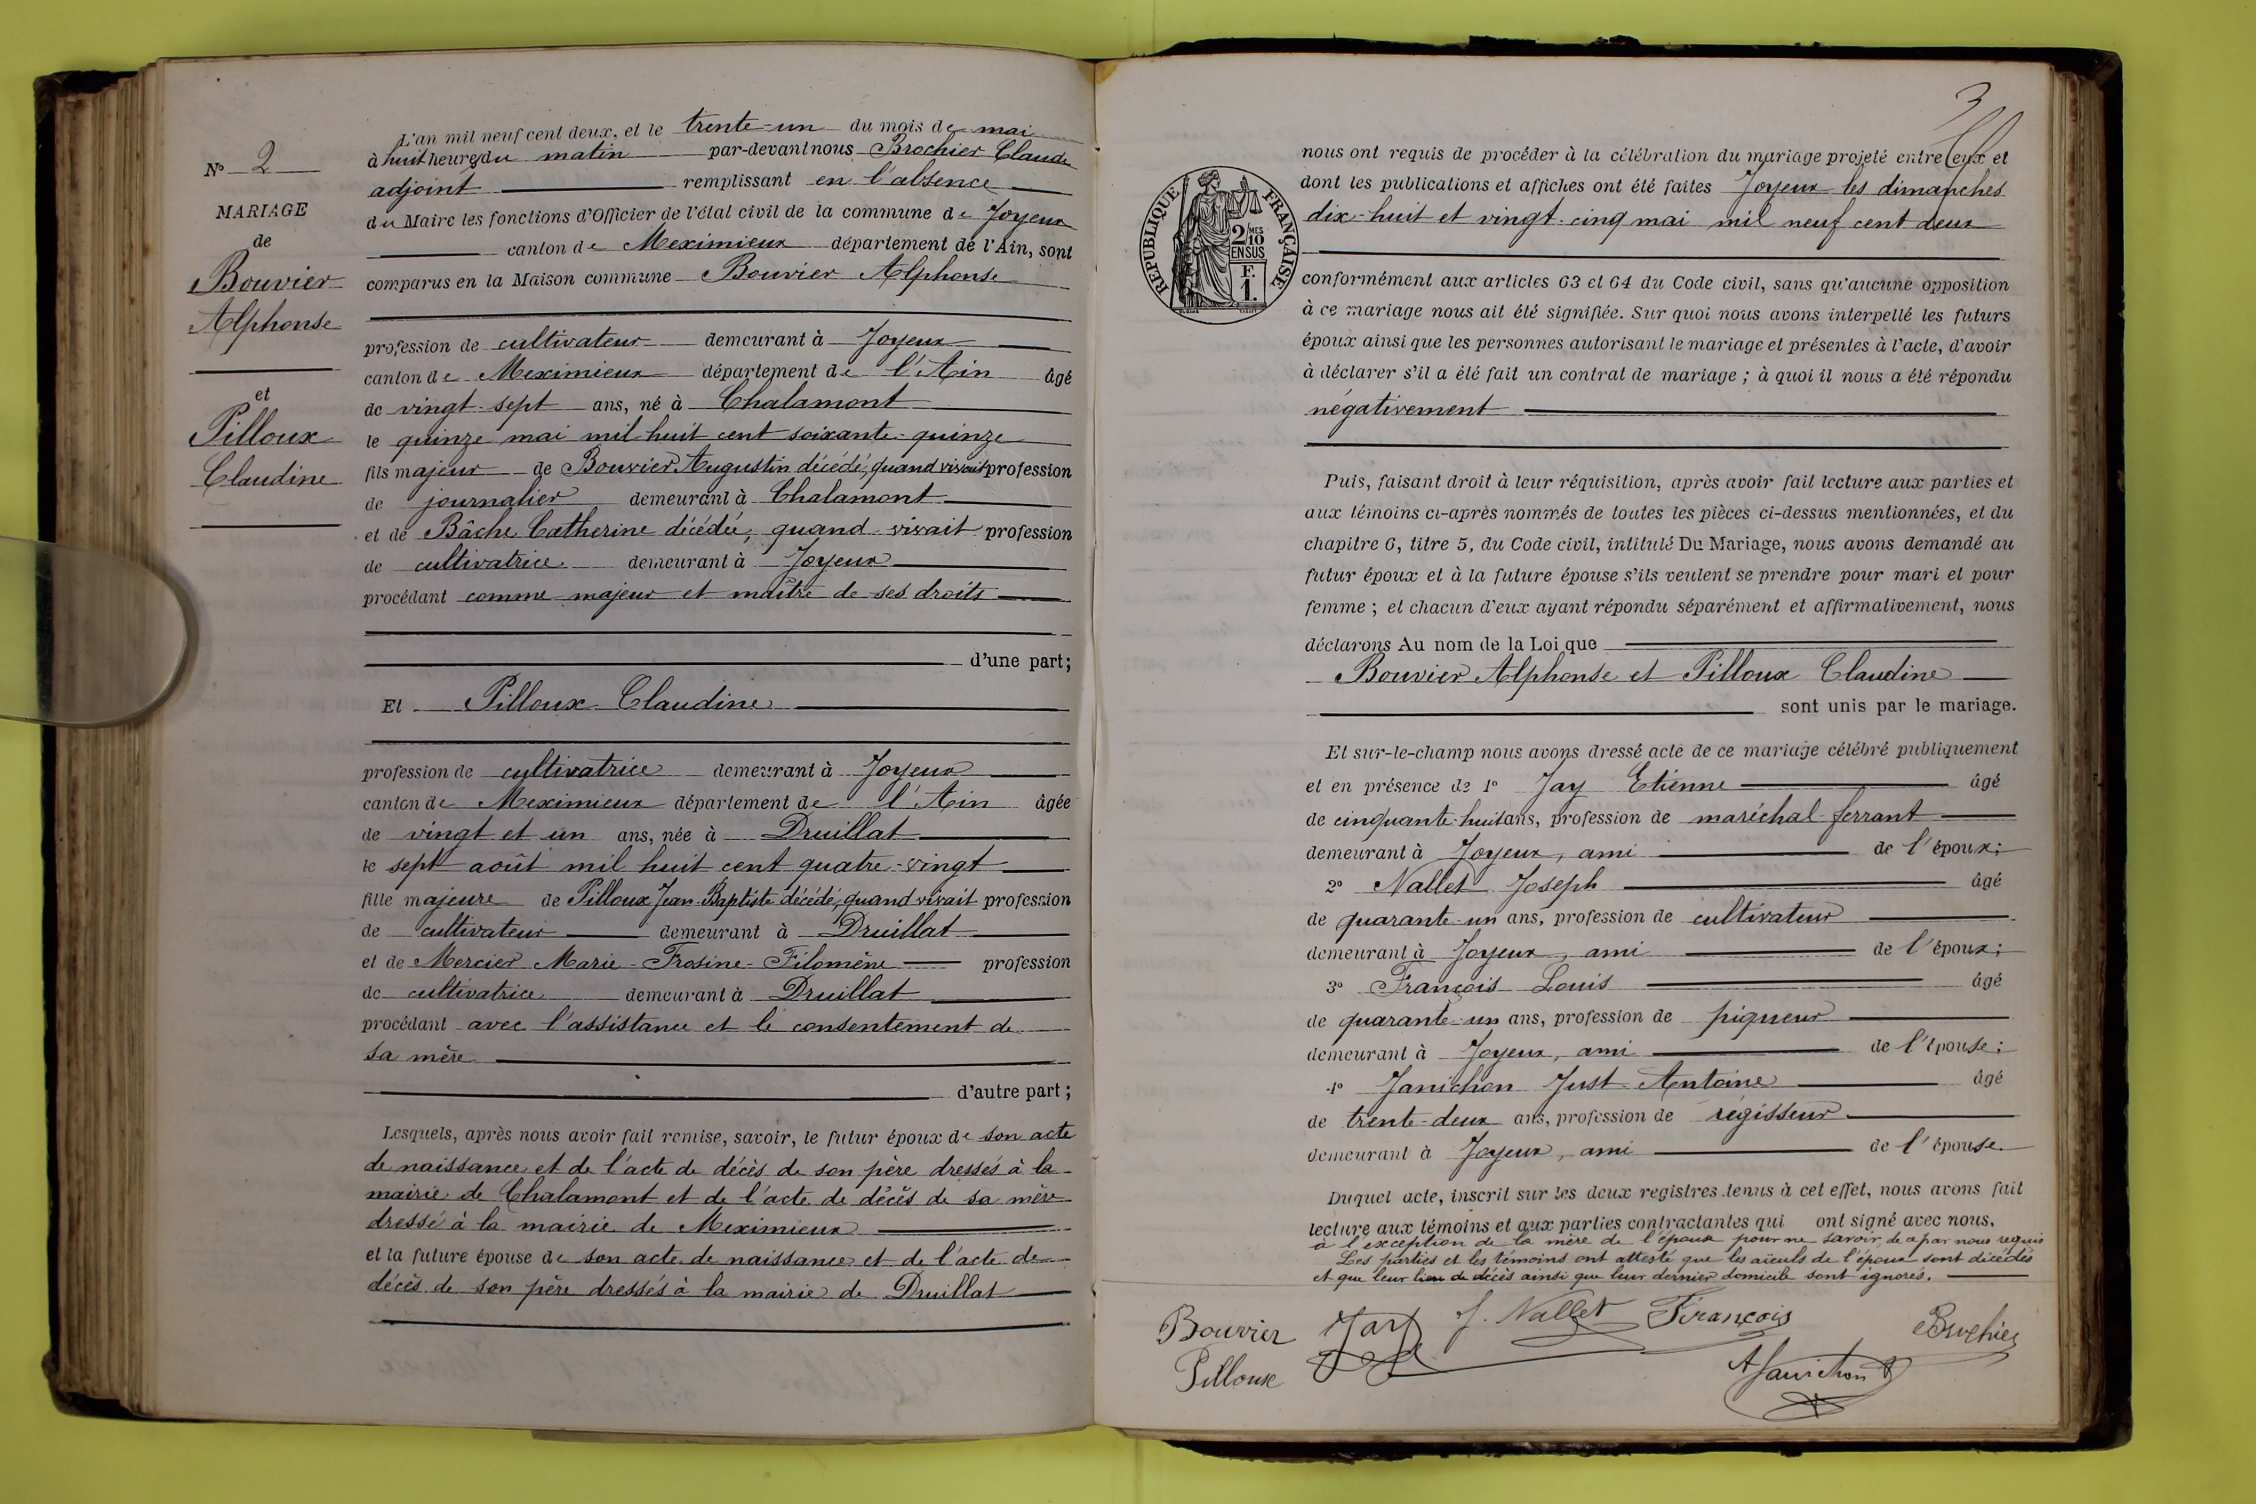 N° 2
MARIAGE
de
Bouvier
Alphonse
et
Pilloux
Claudine
L'an mil neuf cent deux, et le trente-un du mois de mai
à huit heures du matin par-devant nous Brochier Claude
adjoint remplissant en l'absence
du Maire les fonctions d'Officier de l'état civil de la commune de Joyeux
canton de Meximieux département de l'Ain, sont
comparus en la Maison commune Bouvier Alphonse
profession de cultivateur demeurant à Joyeux
canton de Meximieux département de l'Ain âgé
de vingt-sept ans, né à Chalamont
le quinze mai mil huit cent soixante-quinze
fils majeur de Bouvier Augustin décédé, quand vivait profession
de journalier demeurant à Chalamont
et de Bâche Catherine décédée, quand vivait profession
de cultivatrice demeurant à Joyeux
procédant comme majeur et maître de ses droits
d'une part;
Et Pilloux Claudine
profession de cultivatrice demeurant à Joyeux
canton de Meximieux département de l'Ain âgée
de vingt et un ans, née à Druillat
le sept août mil huit cent quatre-vingt
fille majeure de Pilloux Jean-Baptiste décédé, quand vivait profession
de cultivateur demeurant à Druillat
et de Mercier Marie-Frosine-Filomène profession
de cultivatrice demeurant à Druillat
procédant avec l'assistance et le consentement de
sa mère
d'autre part;
Lesquels, après nous avoir fait remise, savoir, le futur époux de son acte
de naissance et de l'acte de décès de son père dressés à la
mairie de Chalamont et de l'acte de décès de sa mère
dressé à la mairie de Meximieux
et la future épouse de son acte de naissance et de l'acte de
décès de son père dressés à la mairie de Druillat
3
RÉPUBLIQUE FRANÇAISE
2/10 MES
EN SUS
F.
1.
nous ont requis de procéder à la célébration du mariage projeté entre eux et
dont les publications et affiches ont été faites Joyeux les dimanches
dix-huit et vingt-cinq mai mil neuf cent deux
conformément aux articles 63 et 64 du Code civil, sans qu'aucune opposition
à ce mariage nous ait été signifiée. Sur quoi nous avons interpellé les futurs
époux ainsi que les personnes autorisant le mariage et présentes à l'acte, d'avoir
à déclarer s'il a été fait un contrat de mariage; à quoi il nous a été répondu
négativement
Puis, faisant droit à leur réquisition, après avoir fait lecture aux parties et
aux témoins ci-après nommés de toutes les pièces ci-dessus mentionnées, et du
chapitre 6, titre 5, du Code civil, intitulé Du Mariage, nous avons demandé au
futur époux et à la future épouse s'ils veulent se prendre pour mari et pour
femme; et chacun d'eux ayant répondu séparément et affirmativement, nous
déclarons Au nom de la Loi que
Bouvier Alphonse et Pilloux Claudine
sont unis par le mariage.
Et sur-le-champ nous avons dressé acte de ce mariage célébré publiquement
et en présence de 1° Jay Etienne âgé
de cinquante-huit ans, profession de maréchal-ferrant
demeurant à Joyeux, ami de l'époux;
2° Nallet Joseph âgé
de quarante-un ans, profession de cultivateur
demeurant à Joyeux, ami de l'époux;
3° François Louis âgé
de quarante-un ans, profession de piqueur
demeurant à Joyeux, ami de l'épouse;
4° Janichon Just Antoine âgé
de trente-deux ans, profession de régisseur
demeurant à Joyeux, ami de l'épouse.
Duquel acte, inscrit sur les deux registres tenus à cet effet, nous avons fait
lecture aux témoins et aux parties contractantes qui ont signé avec nous,
à l'exception de la mère de l'époux pour ne savoir, de ce par nous requis
Les parties et les témoins ont attesté que les aïeuls de l'époux sont décédés
et que leur lieu de décès ainsi que leur dernier domicile sont ignorés.
Bouvier Jay J. Nallet François Brochier
Pilloux A Janichon